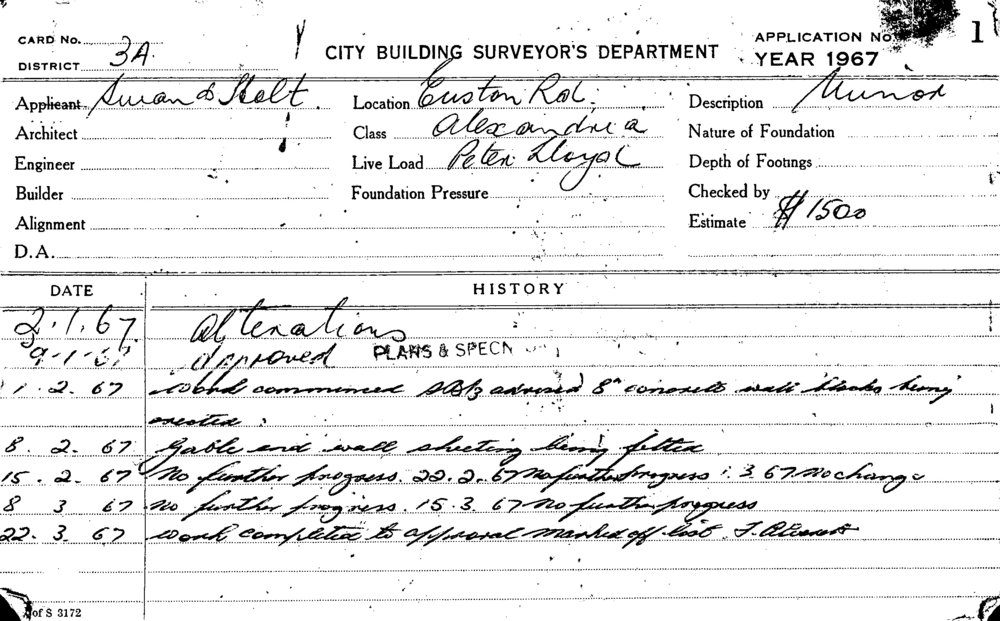 CARD No.
DISTRICT 3A
CITY BUILDING SURVEYOR'S DEPARTMENT
APPLICATION No.
YEAR 1967
1
Applicant Swan & Holt
Location Euston Rd.
Description Minor
Architect
Class Alexandria
Nature of Foundation
Engineer
Live Load Peter Lloyd
Depth of Footings
Builder
Foundation Pressure
Checked by
Alignment
Estimate $1500
D.A.
DATE HISTORY
2.1.67 Alterations
9-1-67 Approved PLANS & SPECN
1.2.67 Work commenced advised 8" concrete wall blocks being
erected.
8.2.67 Gable end wall sheeting being fitted
15.2.67 No further progress. 22.2.67 No further progress 1.3.67 No change
8 3 67 No further progress. 15.3.67 No further progress
22.3.67 Work completed to approval marked off list.
of S 3172